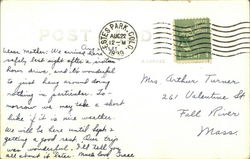 POST CARD
ESTES PARK, COLO.
AUG 22
12-M
1939
Dear Mother: We arrived here
safely last night after a six
hour drive, and it's wonderful
to just hang around doing
nothing in particular. To-
morrow we may take a short
hike if it is nice weather.
We will be here until
getting a good rest. Our trip
was wonderful. I'll tell you
all about it later. Much love
Mrs. Arthur Turner
261 Valentine St
Fall River
Mass.